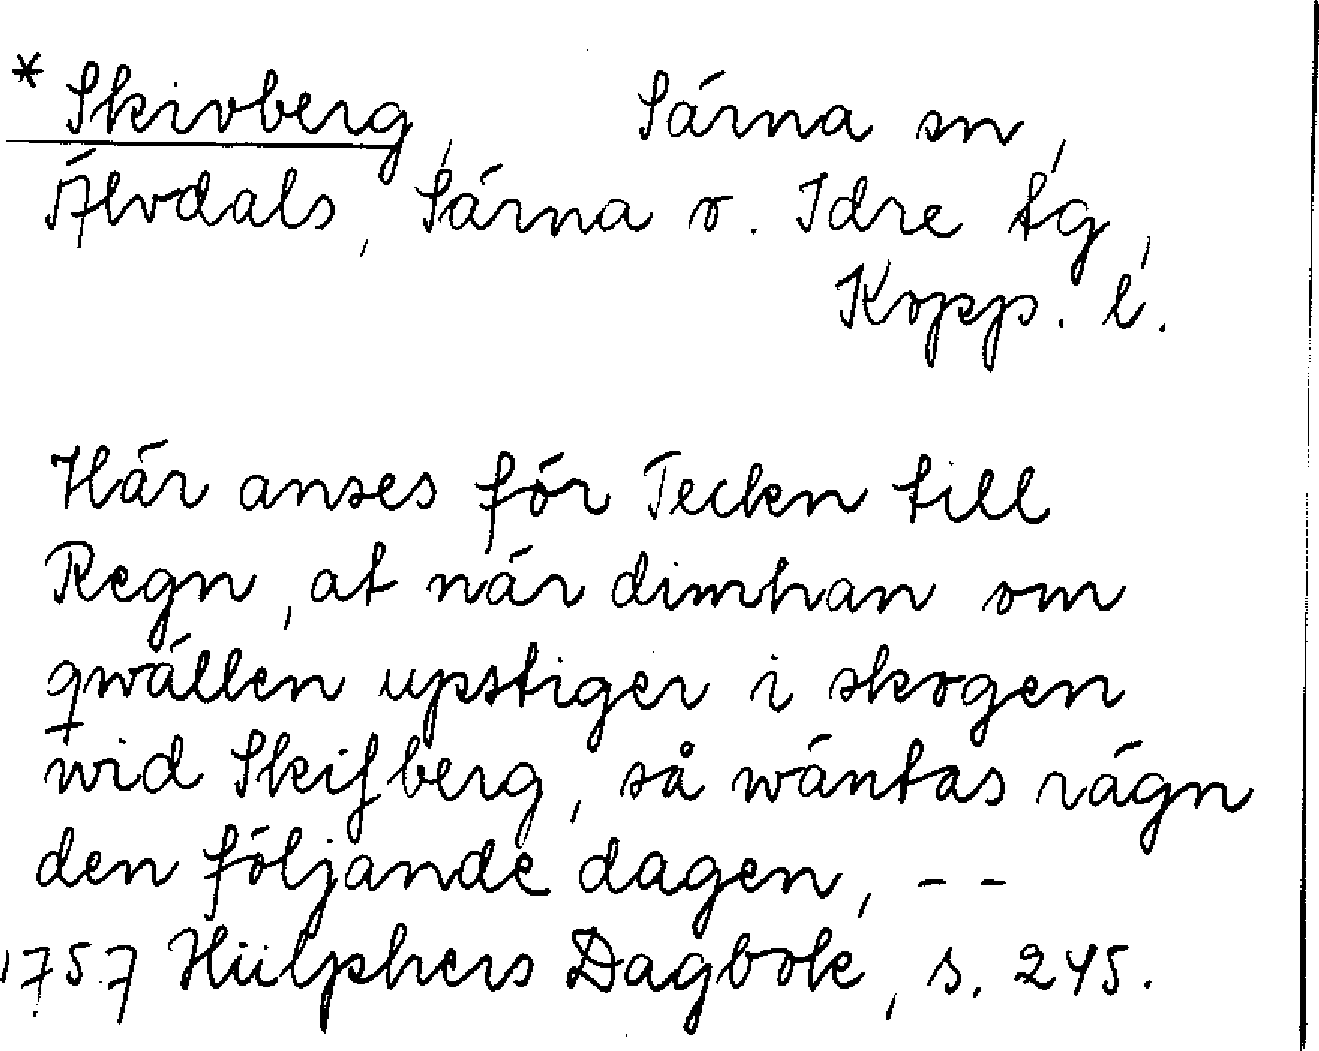 * Skivberg, Särna sn,
Älvdals, Särna o. Idre tg,
Kopp. l.
Här anses för Tecken till
Regn, at när dimhan om
qwällen upstiger i skogen
wid Skifberg, så wäntas rägn
den följande dagen, - -
1757 Hülphers Dagbok, s. 245.